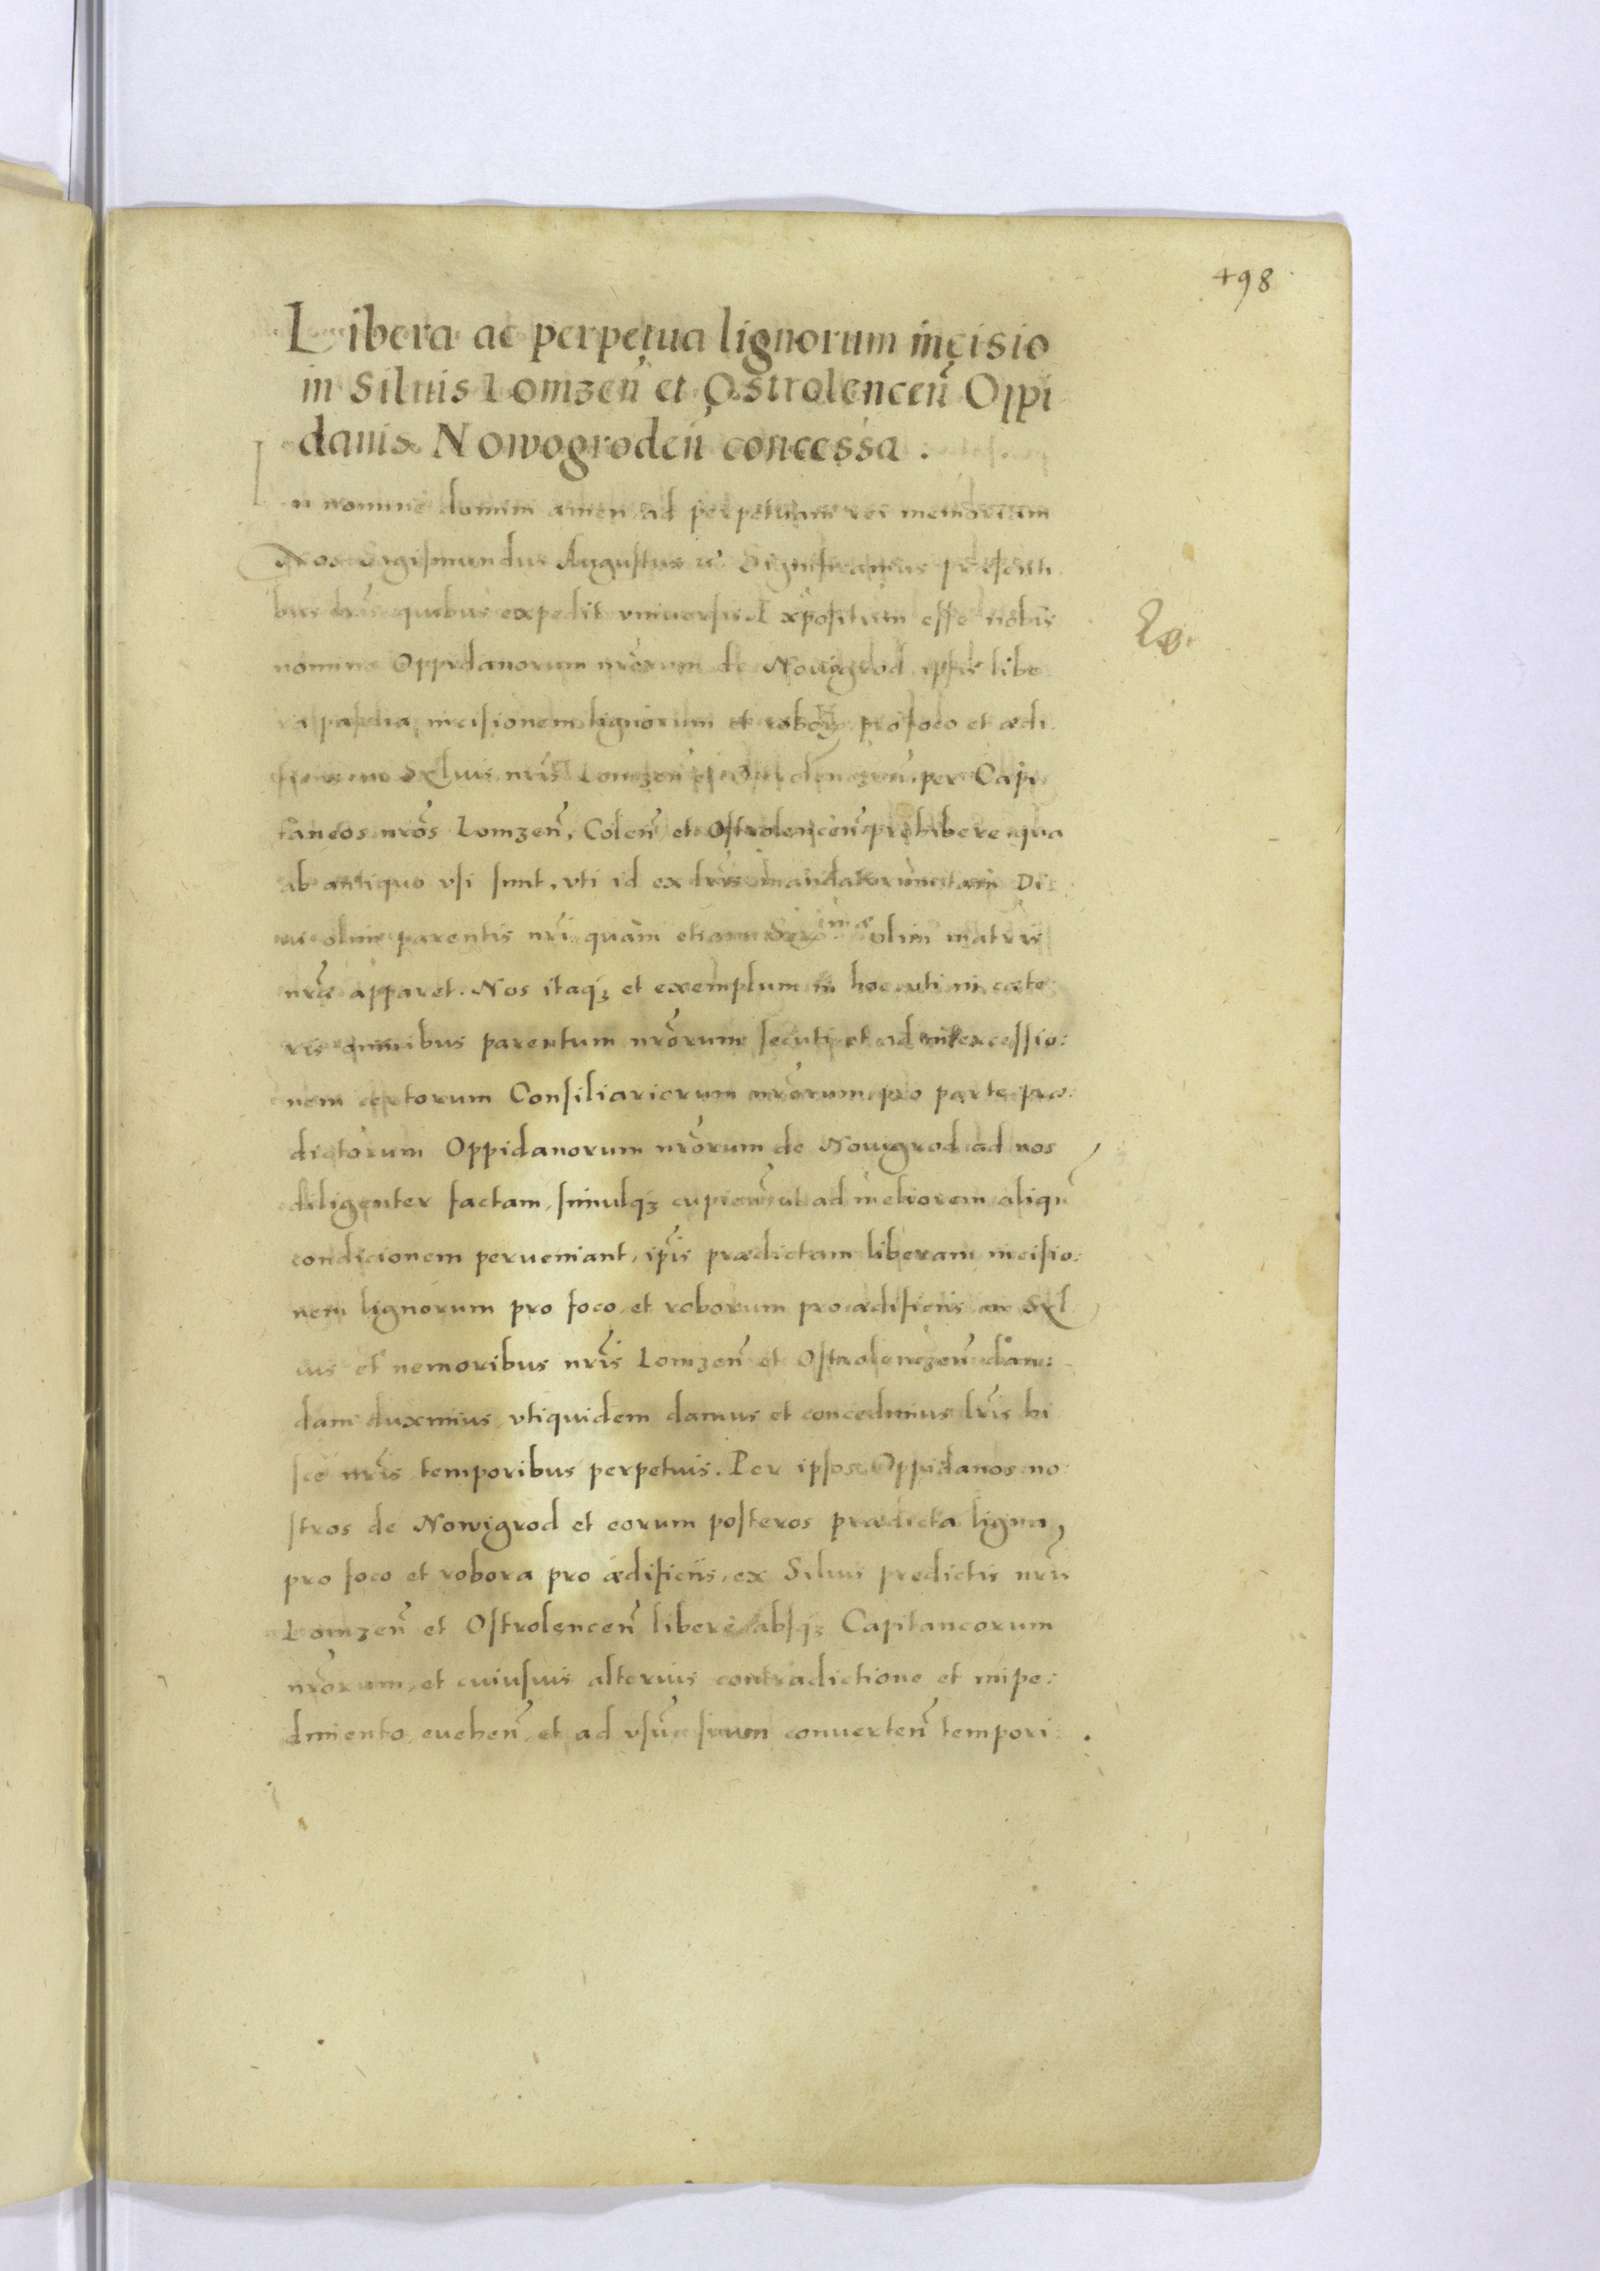 498
Libera ac perpetua lignorum incisio
in Siluis Lomzeñ et Ostrolenceñ Oppi
danis Nowogrodeñ concessa.
In nomine domini amen ad perpetuam rei memoriam
Nos Sigismundus Augustus Significamus presenti
bus lr̃is quibus expedit vniuersis Expositum esse nobis
nomine Oppidanorum nr̃orum de Nowigrod ipsis libe
ra incisionem lignorum et robor pro foco et ædi
Syluis nr̃is Lomzeñ et per Capi
taneos nr̃os Lomzeñ, Coleñ et Ostrolenceñ prohibere qua
ab antiquo vsi sunt, vti id ex lr̃is mandatorum tam Di
ui olim parentis nr̃i quam etiam olim matris
nr̃æ apparet. Nos itaqꝫ et exemplum in hoc uti in cæte
ris omnibus parentum nr̃orum secuti et ad intercessio:
nem certorum Consiliariorum nr̃orum pro parte præ:
dictorum Oppidanorum nr̃orum de Nowigrod ad nos
diligenter factam, simulqꝫ cupieñ ut ad meliorem aliqũ
condicionem perueniant, ip̃is prædictam liberam incisio:
nem lignorum pro foco et roborum pro ædificiis in Syl
uis et nemoribus nr̃is Lomzeñ et Ostrolenczeñ dan:
dam duximus, vti quidem damus et concedimus lr̃is hi
sce nr̃is temporibus perpetuis. Per ipsos Oppidanos no:
stros de Nowigrod et eorum posteros prædicta ligna,
pro foco et robora pro ædificiis, ex Siluis predictis nr̃is
Lomzeñ et Ostrolenceñ liberè absqꝫ Capitaneorum
nr̃orum, et cuiusuis alterius contradictione et impe:
dimento, eueheñ, et ad vsũ suum conuerteñ tempori